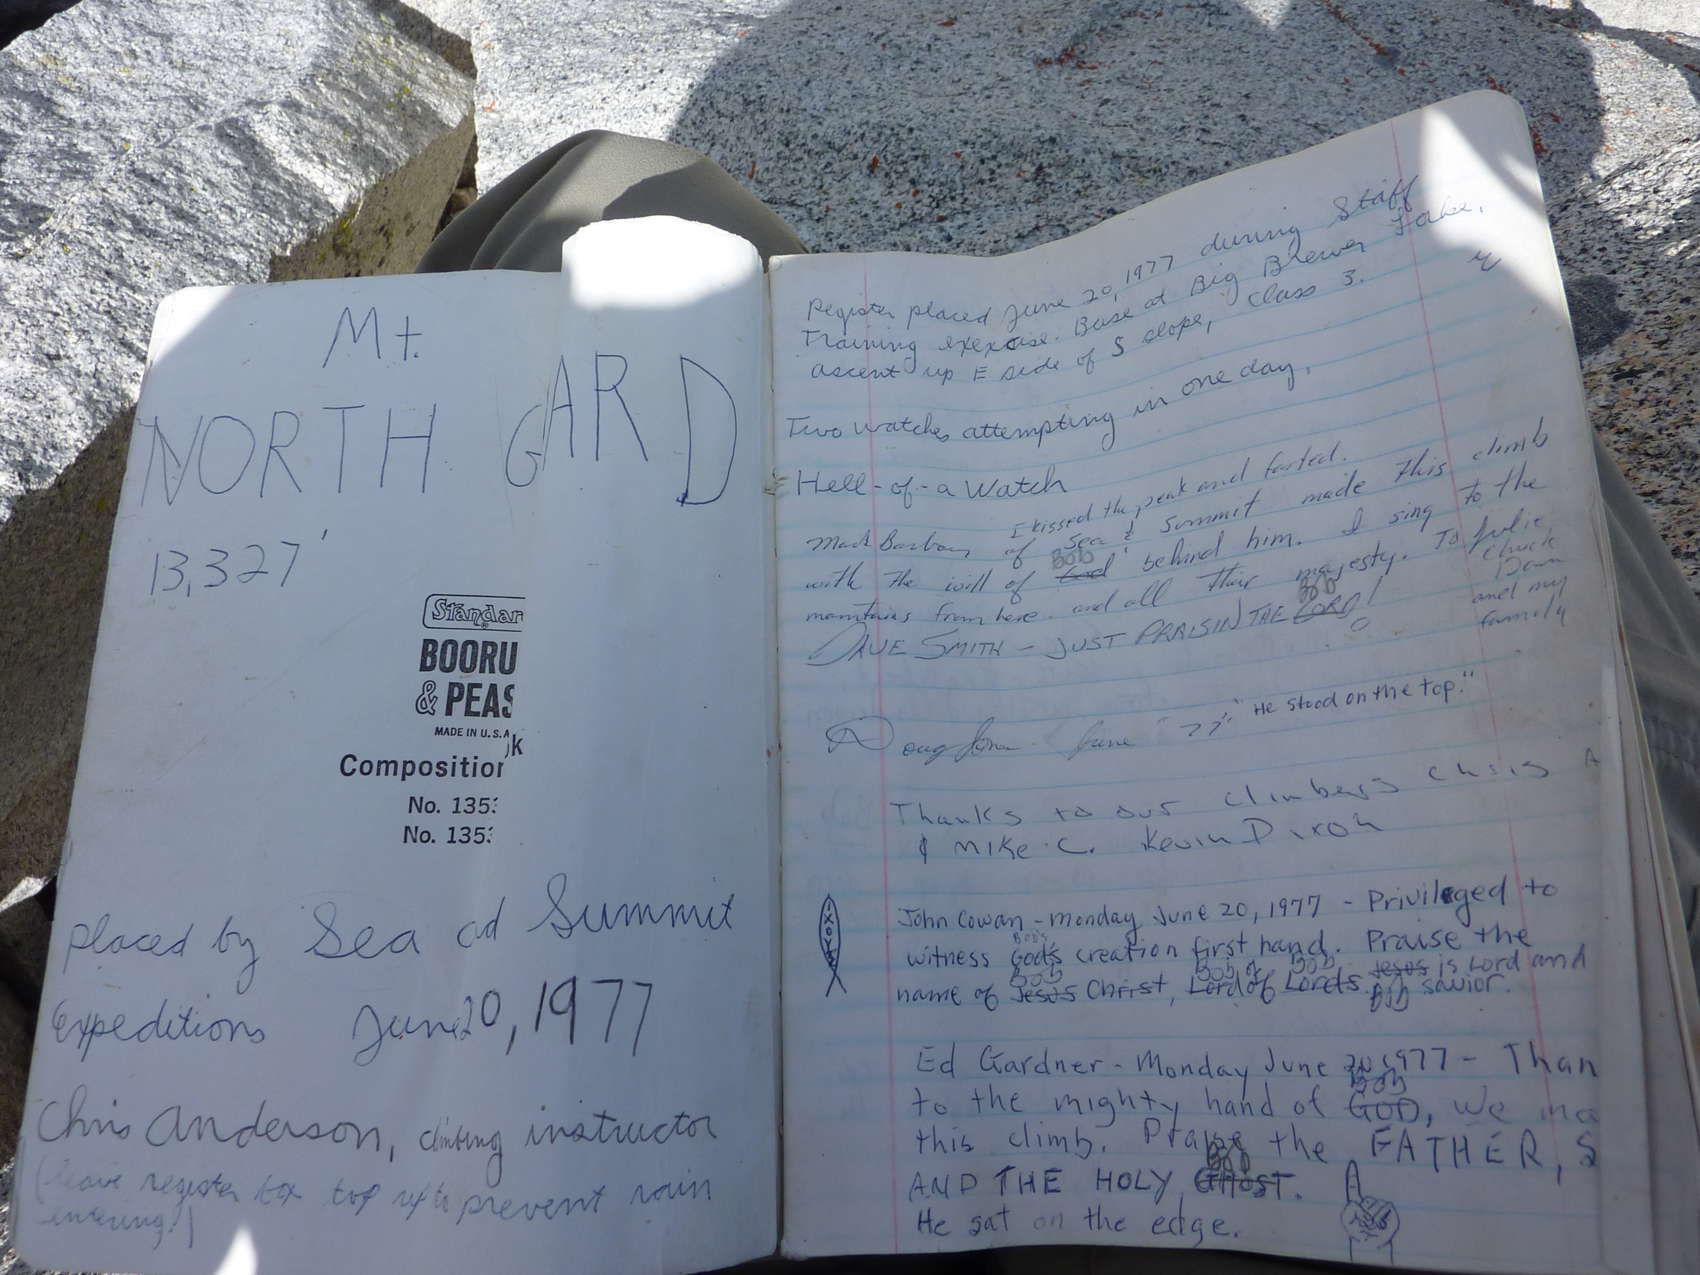 Mt.
NORTH GARD
13,327'
Standar
BOORU
& PEAS
MADE IN U.S.A
k
Composition
No. 1353
No. 1353
placed by Sea ad Summit
Expeditions June 20, 1977
Chris Anderson, climbing instructor
(leave register box top up to prevent rain
entering!)
Register placed June 20, 1977 during Staff
Training exercise. Base at Big Brewer Lake.
ascent up E side of S slope, Class 3.
Two watches attempting in one day.
Hell-of-a Watch
I kissed the peak and farted.
Mark Barbour of Sea & Summit made this climb
with the will of God BOB behind him. I sing to the
mountains from here and all their majesty. To Julie,
Chuck
Dawn
and my
family
DAVE SMITH - JUST PRAISIN THE LORD! BOB
Doug June "77" "He stood on the top."
Thanks to our climbers Chris A
& Mike C. Kevin Dixon
IXOYE
John Cowan - Monday June 20, 1977 - Privileged to
witness God's BOB's creation first hand. Praise the
name of Jesus BOB Christ, Lord BOB of Lords BOB. Jesus BOB is Lord and
savior.
Ed Gardner - Monday June 20 1977 - Than
to the mighty hand of GOD BOB, we ma
this climb. Praise the FATHER, S
AND THE HOLY GHOST BOB.
He sat on the edge.